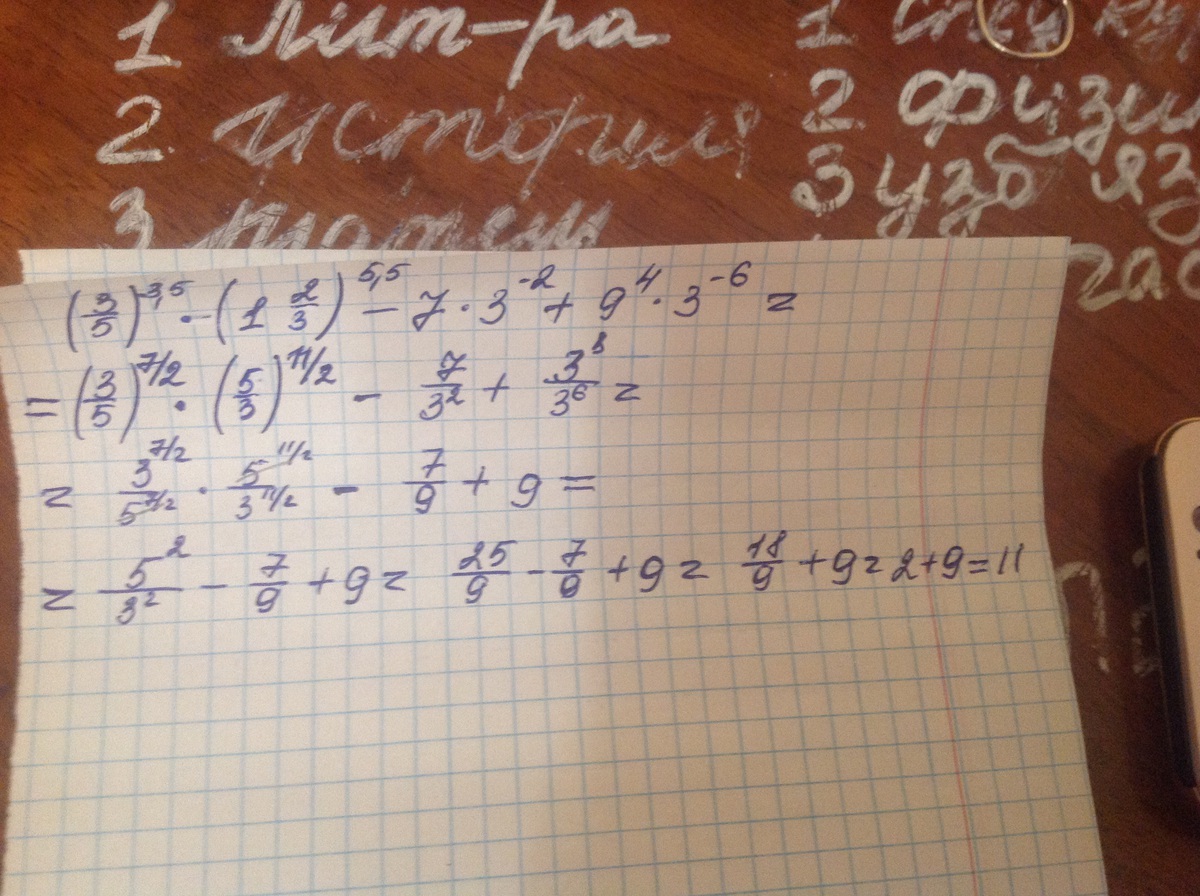 1 Лит-ра
2 История
3
1
2 физи
3 узб яз
(3/5)^3,5 · (1 2/3)^5,5 − 7 · 3^-2 + 9^4 · 3^-6 =
= (3/5)^7/2 · (5/3)^11/2 − 7/3^2 + 3^8/3^6 =
= 3^7/2/5^7/2 · 5^11/2/3^11/2 − 7/9 + 9 =
= 5^2/3^2 − 7/9 + 9 = 25/9 − 7/9 + 9 = 18/9 + 9 = 2 + 9 = 11